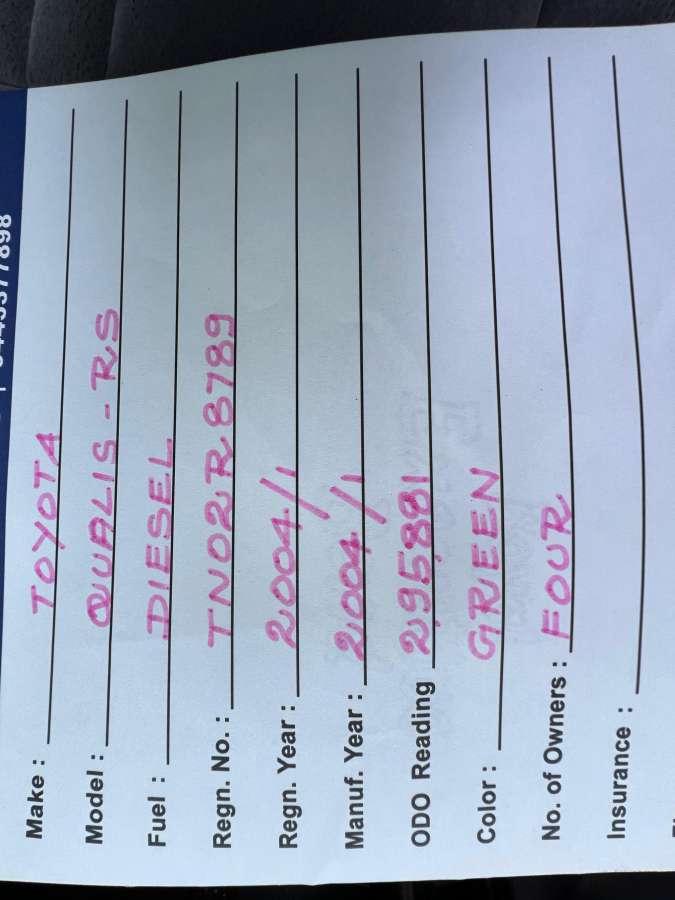 Make : TOYOTA
Model : QUALIS - RS
Fuel : DIESEL
Regn. No. : TN02R8789
Regn. Year : 2004/1
Manuf. Year : 2004/1
ODO Reading 295881
Color : GREEN
No. of Owners : FOUR
Insurance :